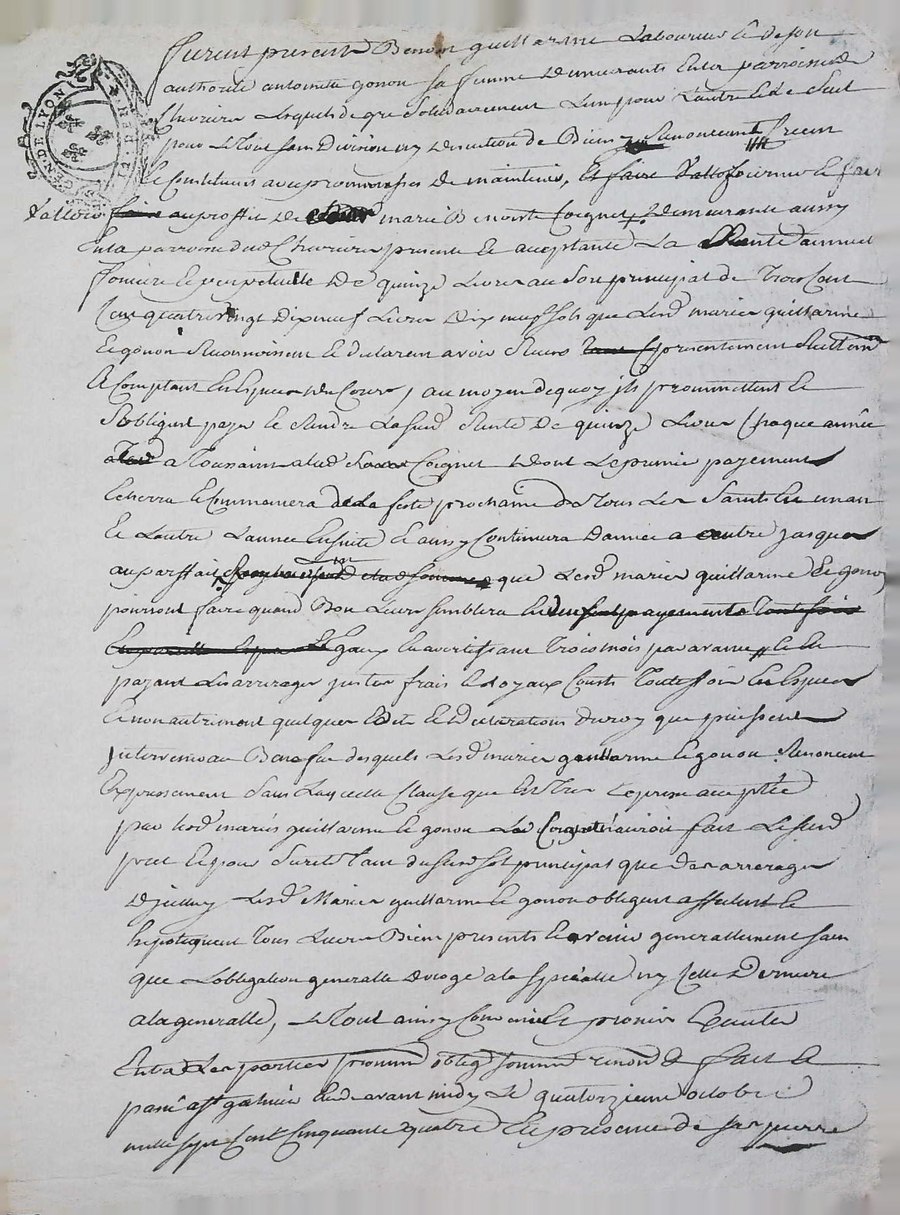 GEN. DE LYON
furent presents Benoist guillarme Laboureur & de son
authorité antoinette gonon sa femme demeurants en la parroisse de
Chevrieres Lesquels de gré solidairement L'un pour L'autre & Le seul
pour Le Tout sans Division ny discution de Biens renonceant
constituent avec promesses de maintenir, et faire valloir
valloir au proffit de marie Benoiste Coignet demeurante aussy
en la parroisse dud Chevrieres presente et acceptante La Rente annuel
fonciere et perpetuelle De quinze Livres au sort principal de Trois Cent
quatre vingt Dix neuf Livres Dix neuf sols que Lesd mariés guillarme
et gonon reconnoissent et declarent avoir receus presentement
Comptant en Especes de Cours, au moyen de quoy ils promettent et
s'obligent payer et rendre Lasusd Rente De quinze Livres Chaque année
a Toussaints a lad Coignet dont Le premier payement
echerra et Commancera de La feste prochaine de Tous Les Saints en un an
et L'autre L'année Ensuitte et ainsy Continuera D'année a autre jusques
au parffait que Lesd mariés guillarme et gonon
pourront faire quand Bon Leur semblera en payements Toutesfois
en avertissant Trois mois par avance et en
payant Les arrerages justes frais et Loyaux Cousts Toutesfois en Especes
et non autrement quelques Edits et declarations du roy que puissent
intervenir au Benefice desquels Lesd mariés guillarme et gonon Renoncent
Expressement sans Laquelle Clause que
par Lesd mariés guillarme et gonon La Coignet n'auroit fait Le susd
pret et pour sureté Tant du susd sol principal que des arrerages
D'jcelluy Lesd Mariés guillarme et gonon obligent affectent et
hipotequent Tous Leurs Biens presents et avenir generallement sans
que L'obligation generalle Deroge a la speciale ny Cette Derniere
a la generalle, Le Tout ainsy Convenu
Entre Les parties promis oblig soumis renon & fait et
passé a St galmier Etude avant midy Le quatorzieme octobre
mille sept Cent Cinquante quatre En presence de Sr pierre